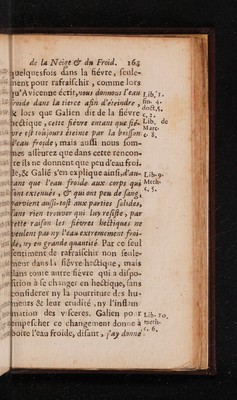 de la Neige & du Froid. 163
quelquesfois dans la fiévre, seule-
ment pour rafraischir, comme lors
qu'Avicenne écrit, nous donnons l'eau
froide dans la tierce afin d'éteindre,
& lors que Galien dit de la fiévre
hectique, cette fiévre entant que fié-
vre est toûjours éteinte par la boisson
d'eau froide, mais aussi nous som-
mes asseurez que dans cette rencon-
tre ils ne donnent que peu d'eau froi-
de, & Galié s'en explique ainsi, d'au-
tant que l'eau froide aux corps qui
sont extenuës, & qui ont peu de sang,
parvient aussi-tost aux parties solides,
sans rien trouver qui luy resiste, par
cette raison les fiévres hectiques ne
veulent pas ny l'eau extremement froi-
de, ny en grande quantité. Par ce seul
sentiment de rafraischir non seule-
ment dans la fiévre hectique, mais
dans toute autre fiévre qui a dispo-
sition à se changer en hectique, sans
considerer ny la pourriture des hu-
meurs & leur crudité, ny l'inflam-
mation des visceres. Galien pour
empescher ce changement donne à
boire l'eau froide, disant, j'ay donné
Lib. 1.
fin. 4.
doct. 5.
c. 2.
Lib. de
Marc.
c. 8.
Lib. 9.
Meth.
c. 5.
Lib. 10.
meth.
c. 6.